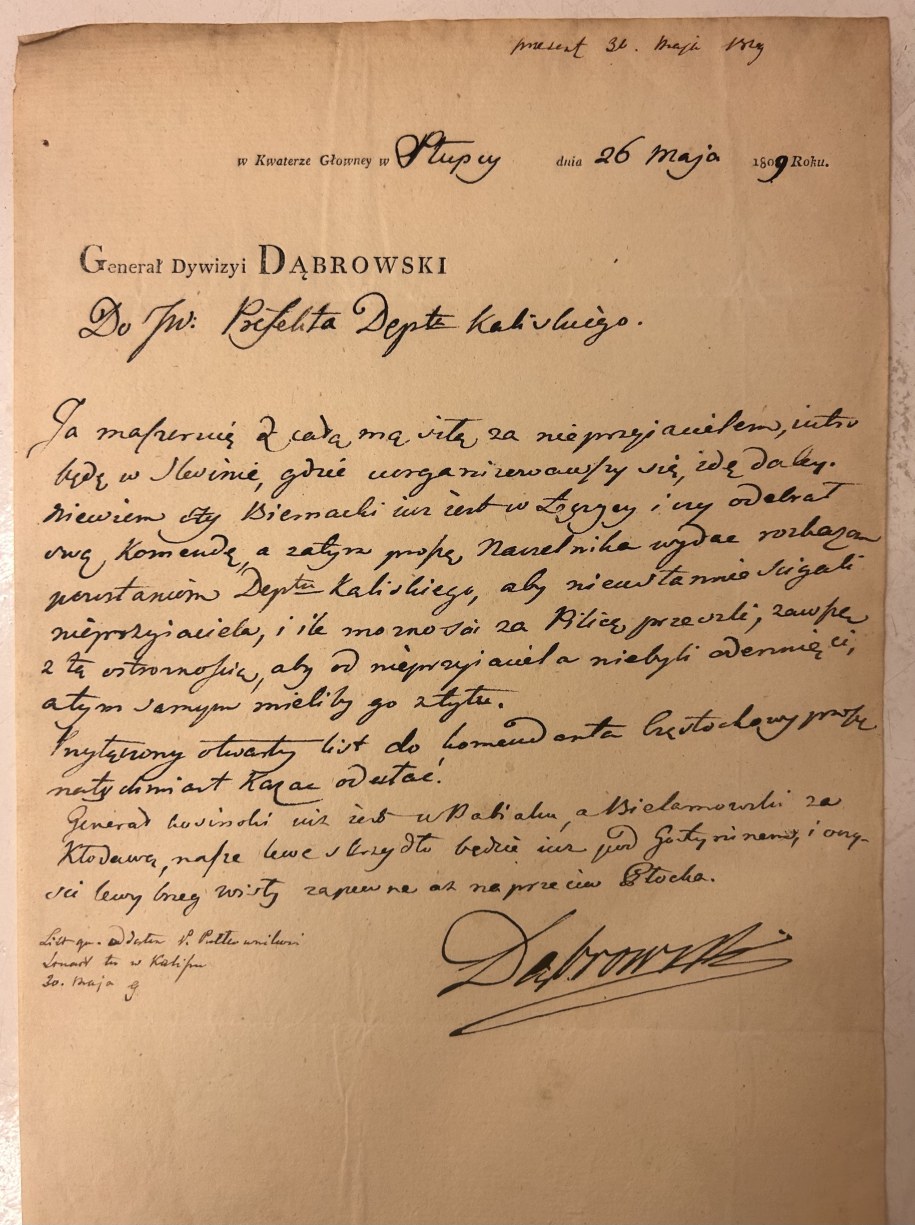 present 30. Maja 1809
w Kwaterze Głowney w Słupcy dnia 26 Maja 1809 Roku.
Generał Dywizyi DĄBROWSKI
Do JW: Prefekta Deptu Kaliskiego.
Ja maszeruię z całą mą siłą za nieprzyiacielem, iutro
będę w Slesinie, gdzie uorganizowawszy się, idę daley.
Niewiem czy Biernacki iuż iest w Łęczycy i czy odebrał
swą Komendę, a zatym proszę Naczelnika wydać rozkazam
powstaniom Deptu Kaliskiego, aby nieustannie scigali
nieprzyiaciela, i ile moznosci za Pilicę przeszli, zawsze
z tą ostroznością, aby od nieprzyiaciela niebyli oderznięci,
a tym samym mieliby go z tyłu.
Przyłączony otwarty list do komendanta Częstochowy proszę
natychmiast kazać odesłać.
Generał Kosinski iuż iest w Babiaku, a Bielamowski za
Kłodawą, nasze lewe skrzydło będzie iuż pod Gostyninem, i oczy-
sci lewy brzeg Wisły zapewne aż naprzeciw Płocka.
Dąbrowski
List
w Kaliszu
30. Maja 9